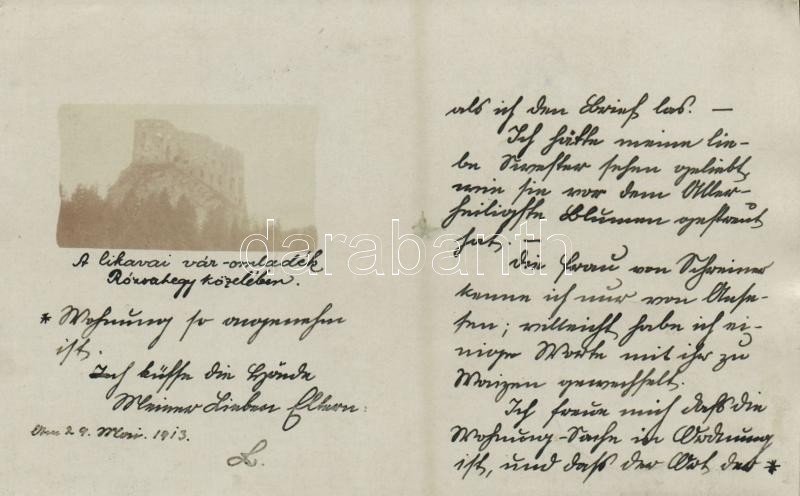 A likavai vár-omladék
Rózsahegy közelében.
* Wohnung so angenehm
ist.
Ich küsse die Hände
Meiner Lieben Eltern:
Am 29. Mai. 1913.
L.
als ich den Brief las. —
Ich hätte meine lie-
be Swester sehen geliebt
wen sie vor dem Aller-
heiligste Blumen gestreut
hat. —
Die Frau von Schreiner
kenne ich nur von Anse-
ten; villeicht habe ich ei-
nige Worte mit ihr zu
Waizen gewechselt.
Ich freue mich daß die
Wohnung-Sache in Ordnung
ist, und daß der Ort der *
darabanth